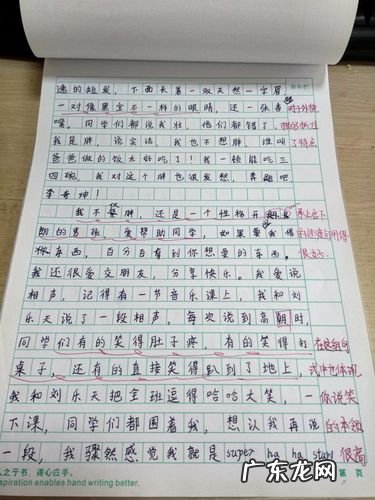 速的短发，下面长着一双天然一字眉，
一对像黑宝石一样的眼睛，还一张香
嘴，同学们都说我壮，他们都错了，
我是胖，说实话，我也不想胖，谁叫
爸爸做的饭太好吃了！我一顿能吃三
四碗，我对这个胖也很发愁，奔跑吧，
李奇珅！
我不仅胖，还是一个性格开朗
朗的男孩，爱帮助同学，如果要我借
你东西，百分百有到你想要的东西。
我还很爱交朋友，分享快乐。我爱说
相声，记得有一节音乐课上，我和刘
乐天说了一段相声，每次说到高潮时，
同学们有的笑得肚子疼，有的笑得打
桌子，还有的直接笑得趴到了地上，
我和刘乐天把全班逗得哈哈大笑，一
下课，同学们都围着我，想让我再说
一段，我骤然感觉我就是super ha ha star
对于外貌
抓住
了特点
承上启下
的过渡句用得
很高
在这组句
式中也体现
你说笑
的本领
很高
人之于书，得心应手。
spiration enables hand writing better.
第 页
广东龙网